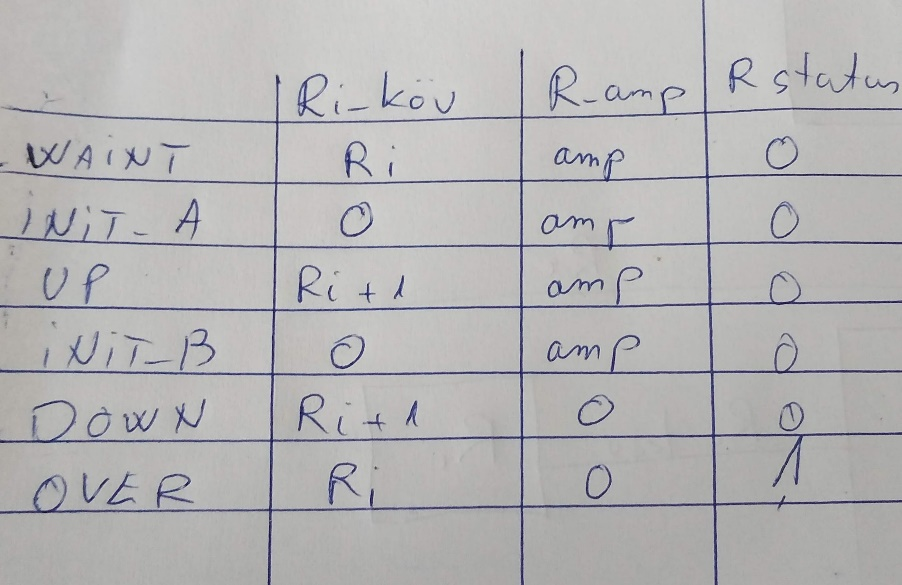 Ri-köv R-amp R status
WAiNT Ri amp 0
iNiT-A 0 amp 0
UP Ri+1 amp 0
iNiT-B 0 amp 0
DOWN Ri+1 0 0
OVER Ri 0 1